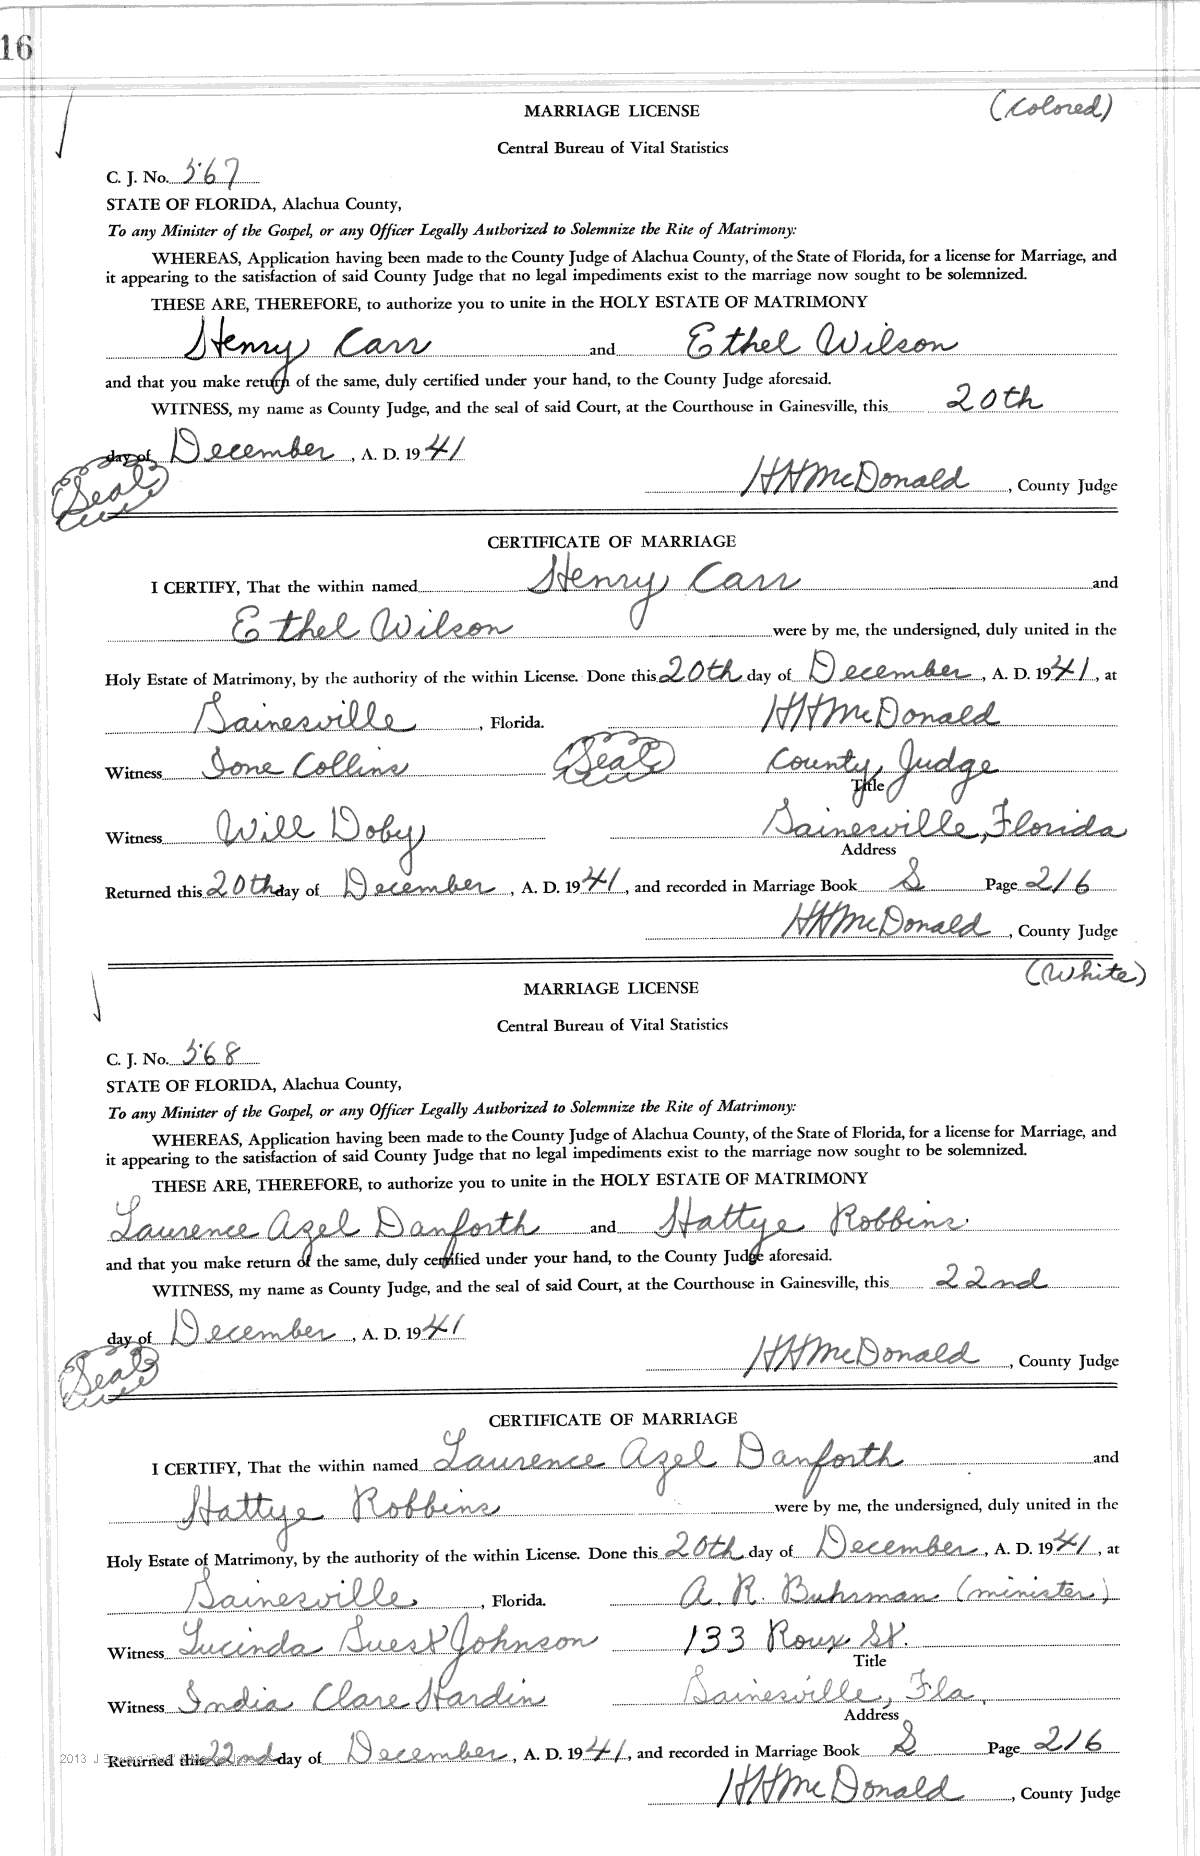 16
MARRIAGE LICENSE
(Colored)
Central Bureau of Vital Statistics
C. J. No. 567
STATE OF FLORIDA, Alachua County,
To any Minister of the Gospel, or any Officer Legally Authorized to Solemnize the Rite of Matrimony:
WHEREAS, Application having been made to the County Judge of Alachua County, of the State of Florida, for a license for Marriage, and
it appearing to the satisfaction of said County Judge that no legal impediments exist to the marriage now sought to be solemnized.
THESE ARE, THEREFORE, to authorize you to unite in the HOLY ESTATE OF MATRIMONY
Henry Carr and Ethel Wilson
and that you make return of the same, duly certified under your hand, to the County Judge aforesaid.
WITNESS, my name as County Judge, and the seal of said Court, at the Courthouse in Gainesville, this 20th
day of December, A. D. 1941
(Seal)
HHMcDonald, County Judge
CERTIFICATE OF MARRIAGE
I CERTIFY, That the within named Henry Carr and
Ethel Wilson were by me, the undersigned, duly united in the
Holy Estate of Matrimony, by the authority of the within License. Done this 20th day of December, A. D. 1941, at
Gainesville, Florida. HHMcDonald
Witness Ione Collins (Seal) County Judge
Title
Witness Will Doby Gainesville, Florida
Address
Returned this 20th day of December, A. D. 1941, and recorded in Marriage Book S Page 216
HHMcDonald, County Judge
(White)
MARRIAGE LICENSE
Central Bureau of Vital Statistics
C. J. No. 568
STATE OF FLORIDA, Alachua County,
To any Minister of the Gospel, or any Officer Legally Authorized to Solemnize the Rite of Matrimony:
WHEREAS, Application having been made to the County Judge of Alachua County, of the State of Florida, for a license for Marriage, and
it appearing to the satisfaction of said County Judge that no legal impediments exist to the marriage now sought to be solemnized.
THESE ARE, THEREFORE, to authorize you to unite in the HOLY ESTATE OF MATRIMONY
Laurence Azel Danforth and Hattye Robbins
and that you make return of the same, duly certified under your hand, to the County Judge aforesaid.
WITNESS, my name as County Judge, and the seal of said Court, at the Courthouse in Gainesville, this 22nd
day of December, A. D. 1941
(Seal)
HHMcDonald, County Judge
CERTIFICATE OF MARRIAGE
I CERTIFY, That the within named Laurence Azel Danforth and
Hattye Robbins were by me, the undersigned, duly united in the
Holy Estate of Matrimony, by the authority of the within License. Done this 20th day of December, A. D. 1941, at
Gainesville, Florida. A. R. Buhrman (minister)
Witness Lucinda Johnson 133 Roux St.
Title
Witness India Clare Hardin Gainesville, Fla.
Address
2013
Returned this 22nd day of December, A. D. 1941, and recorded in Marriage Book S Page 216
HHMcDonald, County Judge